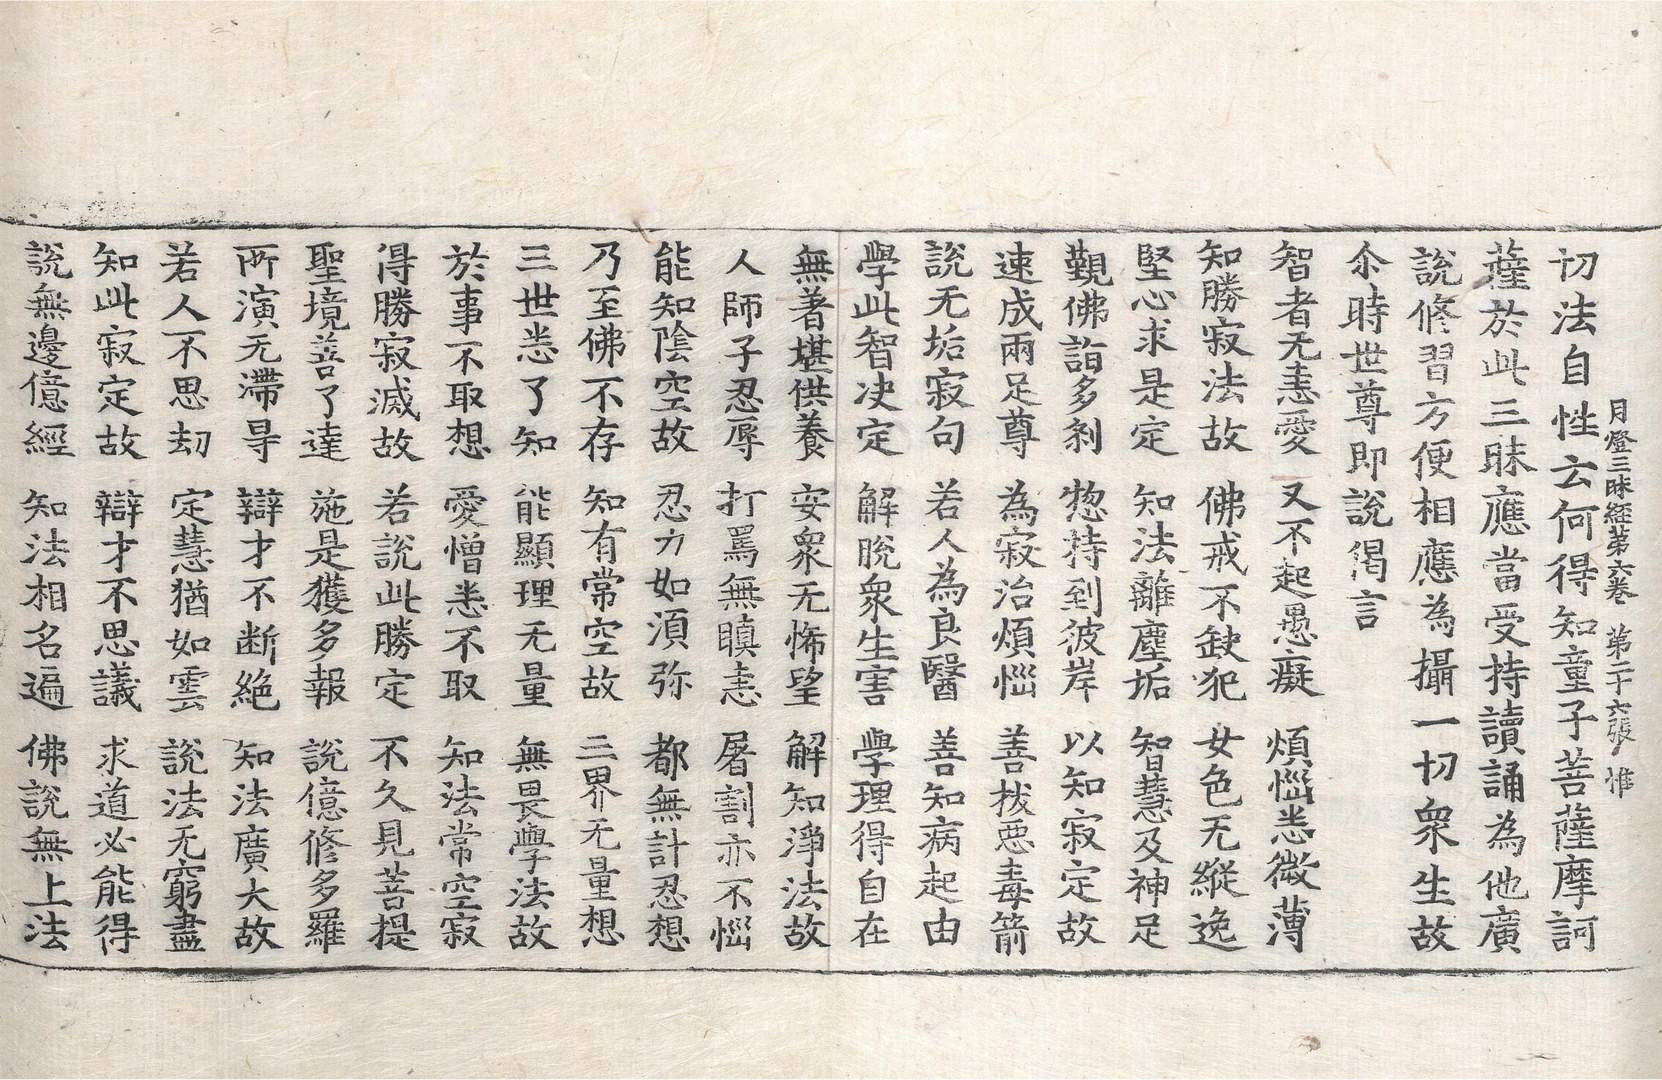 月燈三昧経第六卷 第二十六張 惟
切法自性云何得知童子菩薩摩訶
薩於此三昧應當受持讀誦為他廣
說修習方便相應為攝一切衆生故
尒時世尊即說偈言
智者无恚愛 又不起愚癡 煩惱悉微薄
知勝寂法故 佛戒不缺犯 女色无縱逸
堅心求是定 知法離塵垢 智慧及神足
覲佛詣多刹 惣持到彼岸 以知寂定故
速成兩足尊 為寂治煩惱 善拔惡毒箭
說无垢寂句 若人為良醫 善知病起由
學此智决定 解脫衆生害 學理得自在
無著堪供養 安衆无怖望 解知淨法故
人師子忍辱 打罵無瞋恚 屠割亦不惱
能知陰空故 忍力如須弥 都無計忍想
乃至佛不存 知有常空故 三界无量想
三世悉了知 能顯理无量 無畏學法故
於事不取想 愛憎悉不取 知法常空寂
得勝寂滅故 若說此勝定 不久見菩提
聖境善了達 施是獲多報 說億修多羅
所演无滯㝵 辯才不断絶 知法廣大故
若人不思劫 定慧猶如雲 說法无窮盡
知此寂定故 辯才不思議 求道必能得
說無邊億經 知法相名遍 佛說無上法